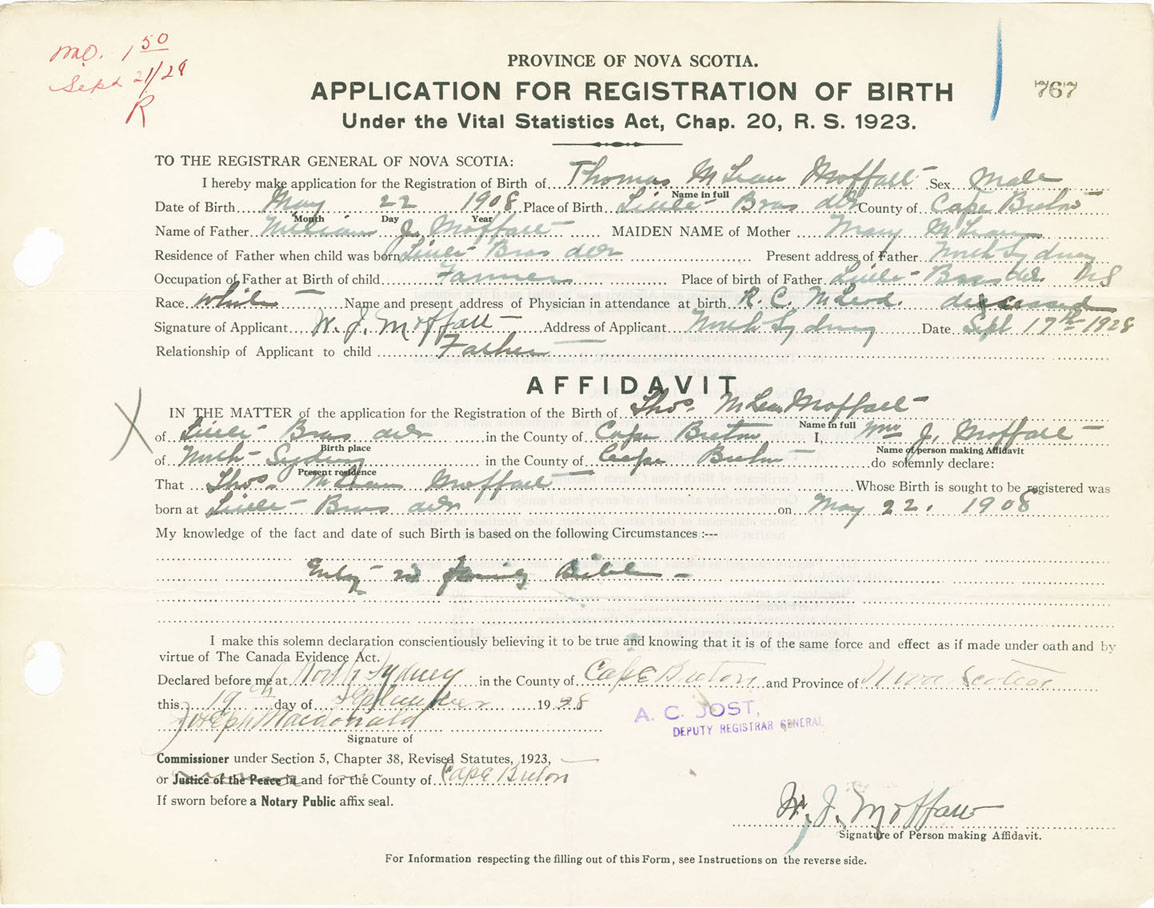 mo. 1 50
Sept 21/28
R
767
PROVINCE OF NOVA SCOTIA.
APPLICATION FOR REGISTRATION OF BIRTH
Under the Vital Statistics Act, Chap. 20, R. S. 1923.
TO THE REGISTRAR GENERAL OF NOVA SCOTIA:
I hereby make application for the Registration of Birth of Thomas McLean Moffatt Sex Male
Name in full
Date of Birth May 22 1908 Place of Birth Little Bras dor County of Cape Breton
Month Day Year
Name of Father William J. Moffatt MAIDEN NAME of Mother Mary McLean
Residence of Father when child was born Little Bras dor Present address of Father North Sydney
Occupation of Father at Birth of child Farmer Place of birth of Father Little Bras dor NS
Race White Name and present address of Physician in attendance at birth R. C. McLeod. deceased
Signature of Applicant W. J. Moffatt Address of Applicant North Sydney Date Sept 17th 1928
Relationship of Applicant to child Father
AFFIDAVIT
X
IN THE MATTER of the application for the Registration of the Birth of Thos. McLean Moffatt
Name in full
of Little Bras dor in the County of Cape Breton I, Wm J. Moffatt
Birth place Name of person making Affidavit
of North Sydney in the County of Cape Breton do solemnly declare:
Present residence
That Thos. McLean Moffatt Whose Birth is sought to be registered was
born at Little Bras dor on May 22. 1908
My knowledge of the fact and date of such Birth is based on the following Circumstances :---
Entry in family Bible
I make this solemn declaration conscientiously believing it to be true and knowing that it is of the same force and effect as if made under oath and by
virtue of The Canada Evidence Act.
Declared before me at North Sydney in the County of Cape Breton and Province of Nova Scotia
this 19th day of September 1928
Joseph Macdonald
Signature of
A. C. JOST,
DEPUTY REGISTRAR GENERAL
Commissioner under Section 5, Chapter 38, Revised Statutes, 1923,
or Justice of the Peace in and for the County of Cape Breton
If sworn before a Notary Public affix seal.
W. J. Moffatt
Signature of Person making Affidavit.
For Information respecting the filling out of this Form, see Instructions on the reverse side.